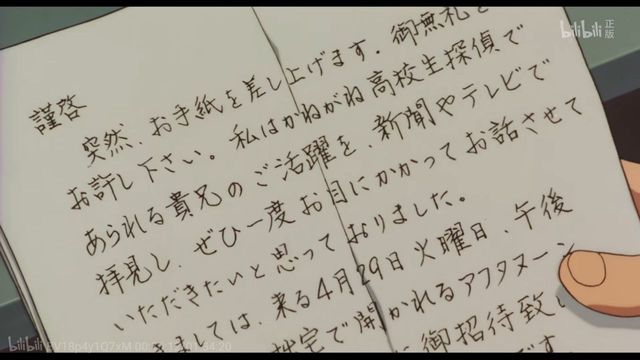 bilibili 正版
謹啓
突然、お手紙を差し上げます。御無礼を
お許し下さい。私はかねがね高校生探偵で
あられる貴兄のご活躍を、新聞やテレビで
拝見し、ぜひ一度お目にかかってお話させて
いただきたいと思っておりました。
ましては、来る4月29日火曜日、午後
拙宅で開かれるアフタヌーン
に御招待致し
です
bilibili